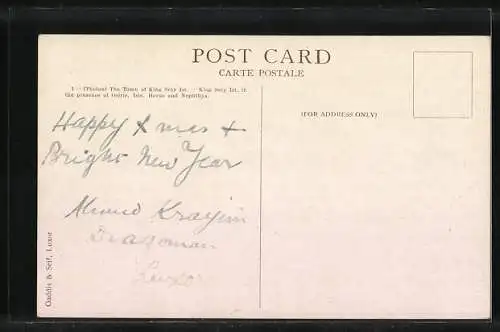 POST CARD
CARTE POSTALE
1 — (Thebes) The Tomb of King Sety Ist. King Sety Ist, in
the presence of Osiris, Isis, Horus and Nephthys.
(FOR ADDRESS ONLY)
Happy Xmas +
Bright New Year
Krayim
Dragoman
Luxor
Gaddis & Seif, Luxor